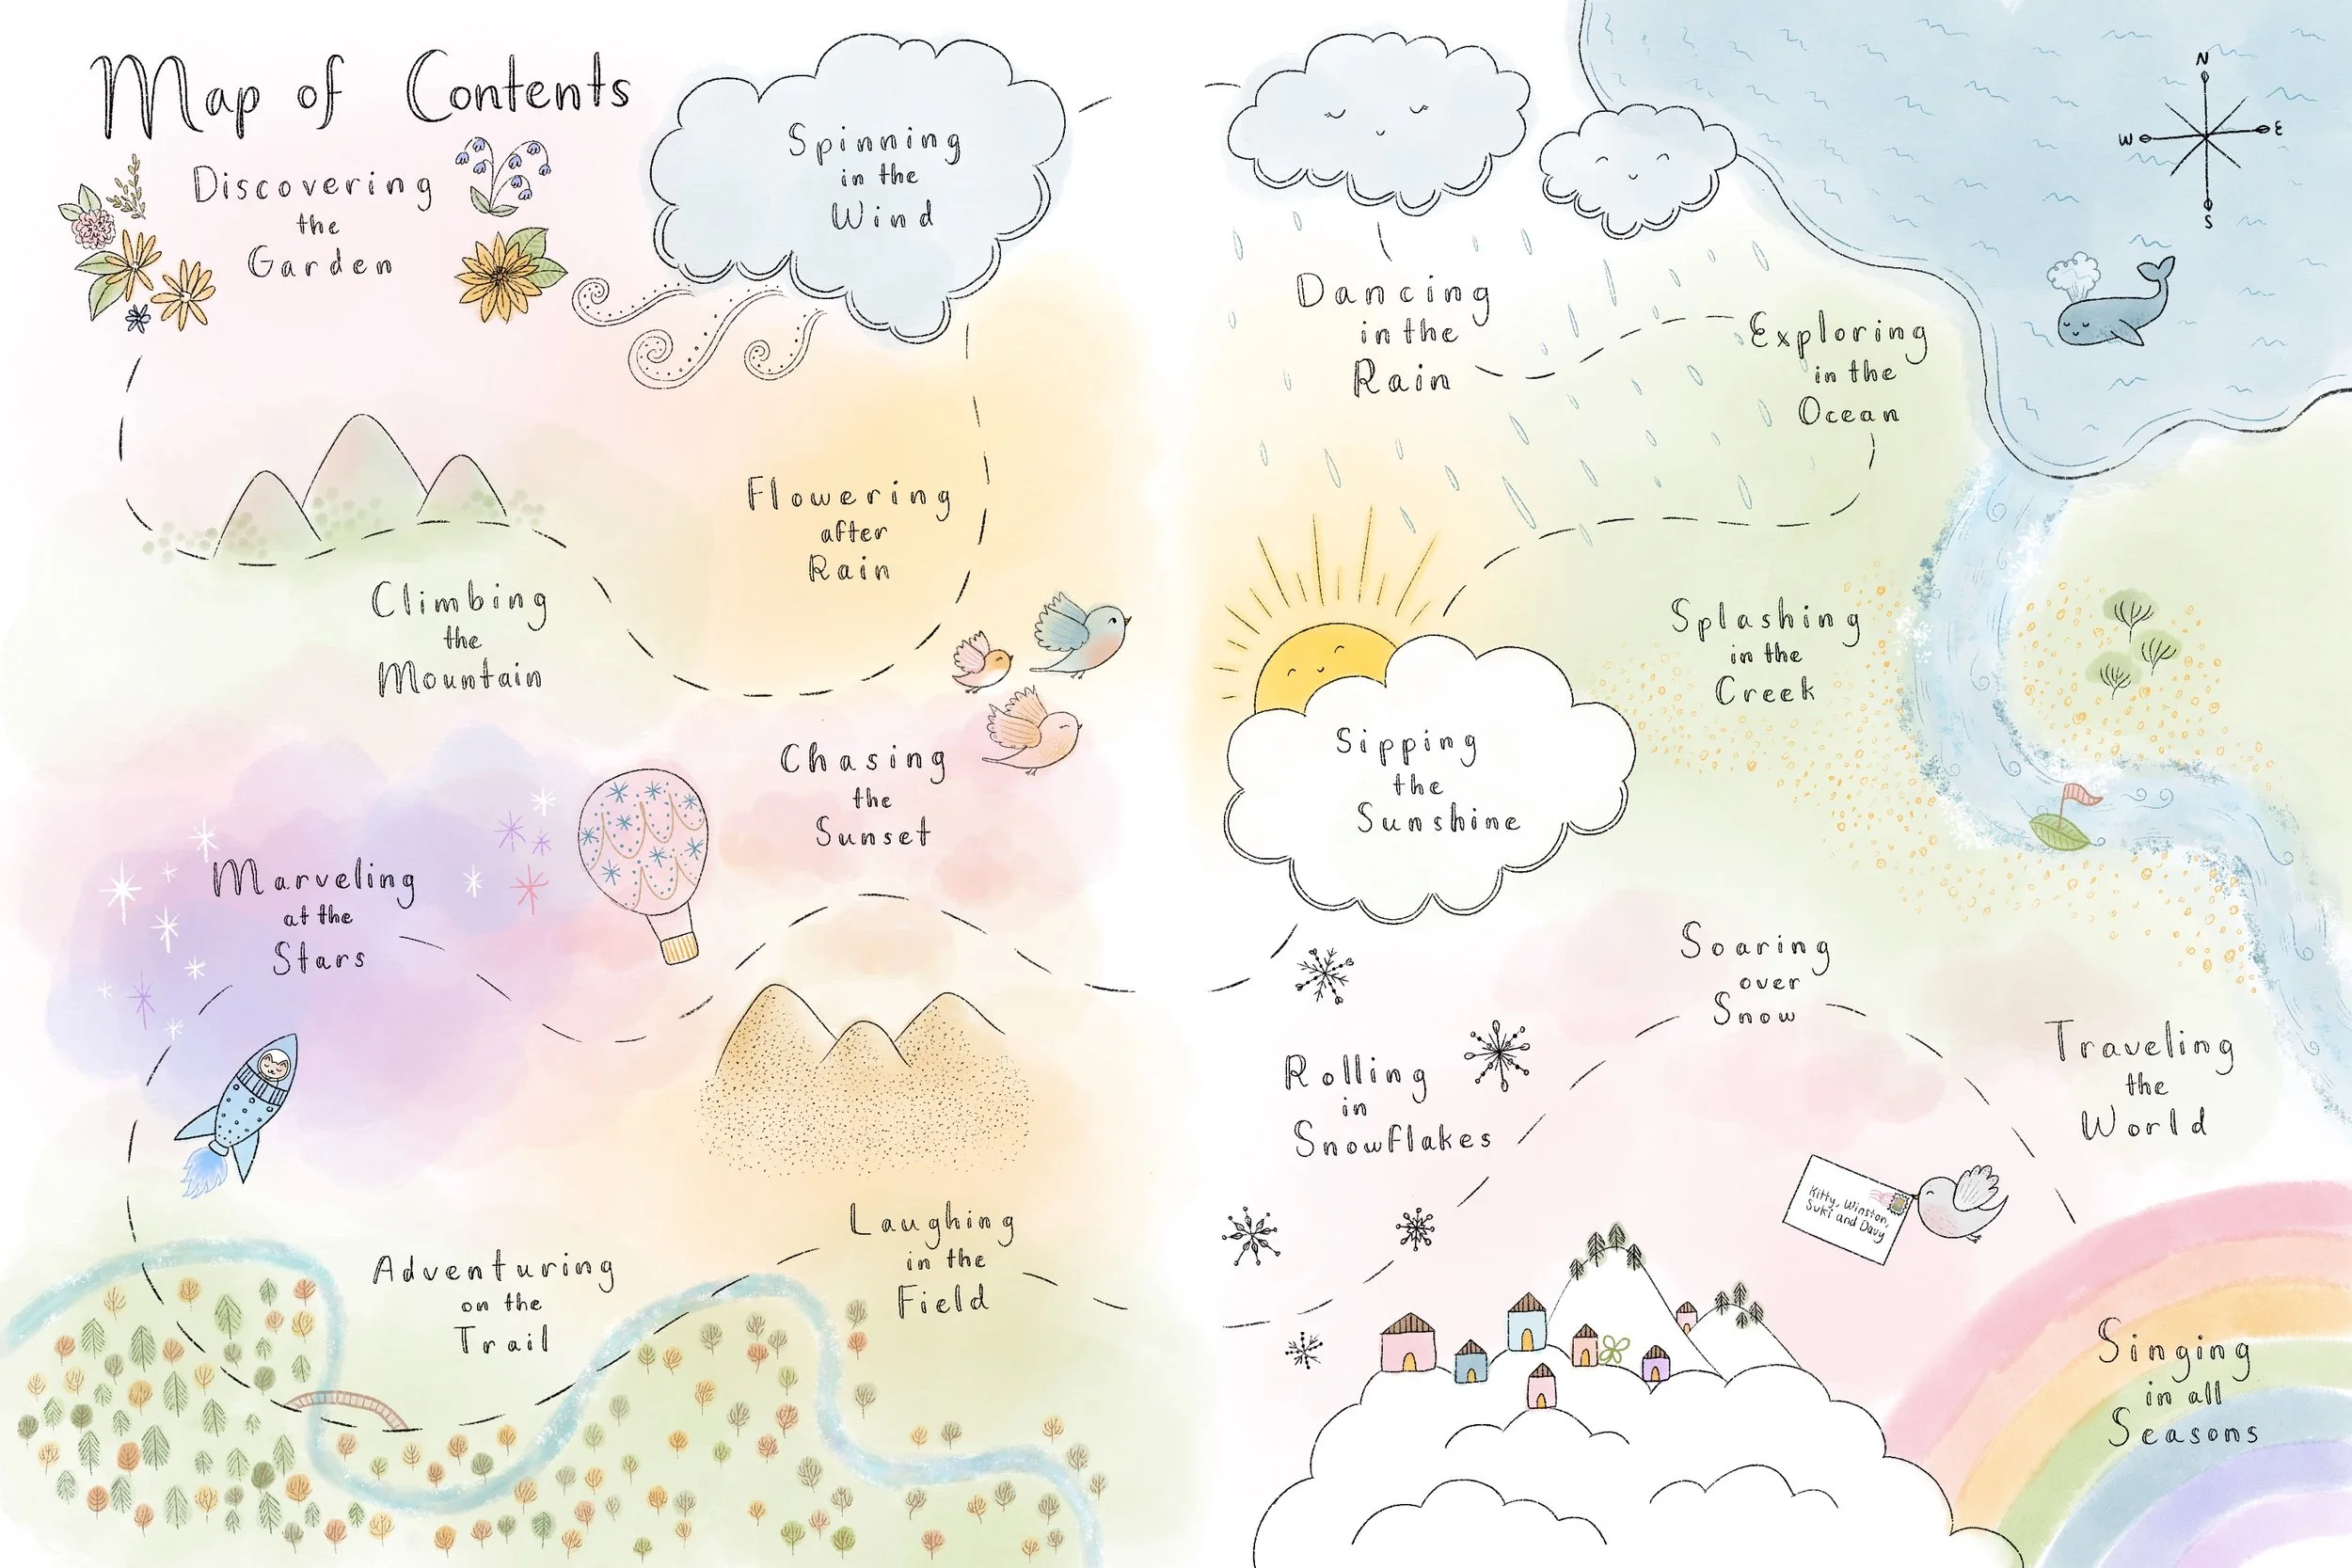 Map of Contents
Discovering
the
Garden
Spinning
in the
Wind
Climbing
the
Mountain
Flowering
after
Rain
Chasing
the
Sunset
Marveling
at the
Stars
Adventuring
on the
Trail
Laughing
in the
Field
N
W
E
S
Dancing
in the
Rain
Exploring
in the
Ocean
Splashing
in the
Creek
Sipping
the
Sunshine
Soaring
over
Snow
Rolling
in
Snowflakes
Traveling
the
World
Kitty, Winston,
Suki and Davy
Singing
in all
Seasons